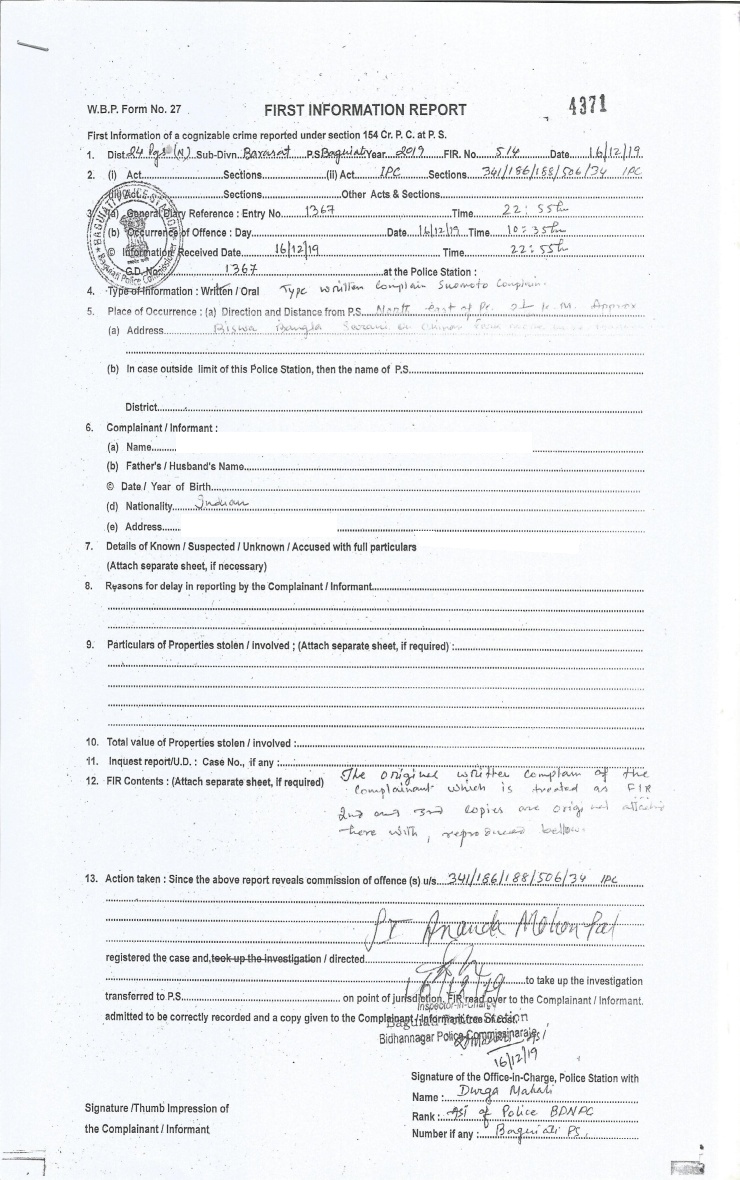 4371
W.B.P. Form No. 27 FIRST INFORMATION REPORT
First Information of a cognizable crime reported under section 154 Cr. P. C. at P. S.
1. Dist. 24 Pgs (N) Sub-Divn. Barasat P.S. Baguiati Year 2019 FIR. No. 514 Date 16/12/19
2. (i) Act Sections (ii) Act IPC Sections 341/186/188/506/34 IPC
(iii) Act Sections Other Acts & Sections
3. (a) General Diary Reference : Entry No. 1367 Time 22:55 hr
(b) Occurrence of Offence : Day Date 16/12/19 Time 10:35 hr
© Information Received Date 16/12/19 Time 22:55 hr
G.D. No. 1367 at the Police Station :
4. Type of Information : Written / Oral Type written Complain Suomoto Complain.
5. Place of Occurrence : (a) Direction and Distance from P.S. North East of Ps. Approx
(a) Address Biswa Bangla Sarani
(b) In case outside limit of this Police Station, then the name of P.S.
District
6. Complainant / Informant :
(a) Name
(b) Father's / Husband's Name
© Date / Year of Birth
(d) Nationality Indian
(e) Address
7. Details of Known / Suspected / Unknown / Accused with full particulars
(Attach separate sheet, if necessary)
8. Reasons for delay in reporting by the Complainant / Informant
9. Particulars of Properties stolen / involved ; (Attach separate sheet, if required) :
10. Total value of Properties stolen / involved :
11. Inquest report/U.D. : Case No., if any :
12. FIR Contents : (Attach separate sheet, if required) The original written complain of the
complainant which is treated as FIR
2nd and 3rd copies are original
here with, reproduced bellow.
13. Action taken : Since the above report reveals commission of offence (s) u/s. 341/186/188/506/34 IPC
Ananda Mohon Pal
registered the case and, took up the investigation / directed
16/12/19 to take up the investigation
transferred to P.S. on point of jurisdiction. FIR read over to the Complainant / Informant.
Inspector-in-Charge
admitted to be correctly recorded and a copy given to the Complainant / Informant free of cost.
Baguiati Police Station
Bidhannagar Police Commissionarate
16/12/19
Signature of the Office-in-Charge, Police Station with
Name : Durga Mahali
Signature /Thumb Impression of
the Complainant / Informant
Rank : ASI of Police BDNPC
Number if any : Baguiati PS.